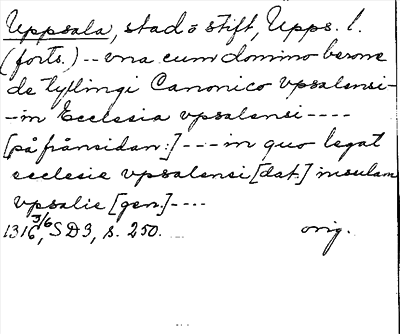 Uppsala, stad o stift, Upps. l.
(forts.) -- vna cum domino berone
de tyflingi Canonico vpsalensi-
-in Ecclesia vpsalensi ----
[på frånsidan:] --- in quo legat
ecclesie vpsalensi [dat.] insulam
vpsalie [gen.] ----
1316 3/6, SD3, s. 250. orig.